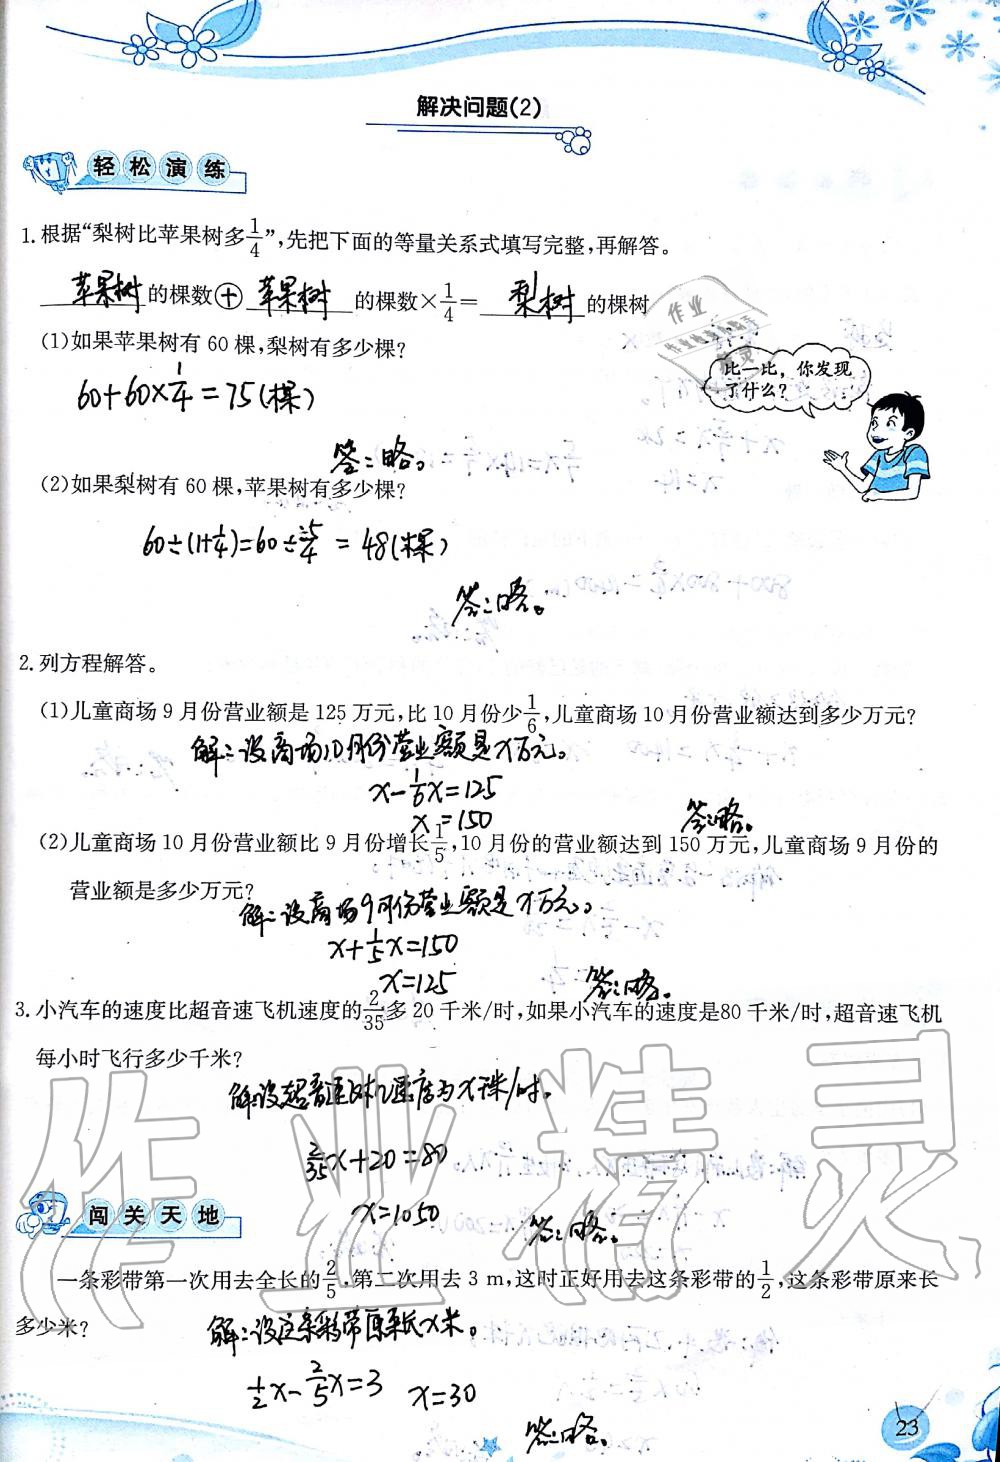 解决问题(2)
轻松演练
1.根据“梨树比苹果树多1/4”,先把下面的等量关系式填写完整,再解答。
苹果树的棵数⊕苹果树的棵数×1/4=梨树的棵树
(1)如果苹果树有60棵,梨树有多少棵?
比一比,你发现
了什么?
60+60×1/4=75(棵)
答:略。
(2)如果梨树有60棵,苹果树有多少棵?
60÷(1+1/4)=60÷5/4=48(棵)
答:略。
2.列方程解答。
(1)儿童商场9月份营业额是125万元,比10月份少1/6,儿童商场10月份营业额达到多少万元?
解:设商场10月份营业额是x万元。
x-1/6x=125
x=150
答:略。
(2)儿童商场10月份营业额比9月份增长1/5,10月份的营业额达到150万元,儿童商场9月份的
营业额是多少万元?
解:设商场9月份营业额是x万元。
x+1/5x=150
x=125
答:略。
3.小汽车的速度比超音速飞机速度的2/35多20千米/时,如果小汽车的速度是80千米/时,超音速飞机
每小时飞行多少千米?
解:设超音速飞机速度为x千米/时。
2/35x+20=80
x=1050
答:略。
闯关天地
一条彩带第一次用去全长的2/5,第二次用去3m,这时正好用去这条彩带的1/2,这条彩带原来长
多少米?
解:设这条彩带原来长x米。
1/2x-2/5x=3 x=30
答:略。
23
作业精灵